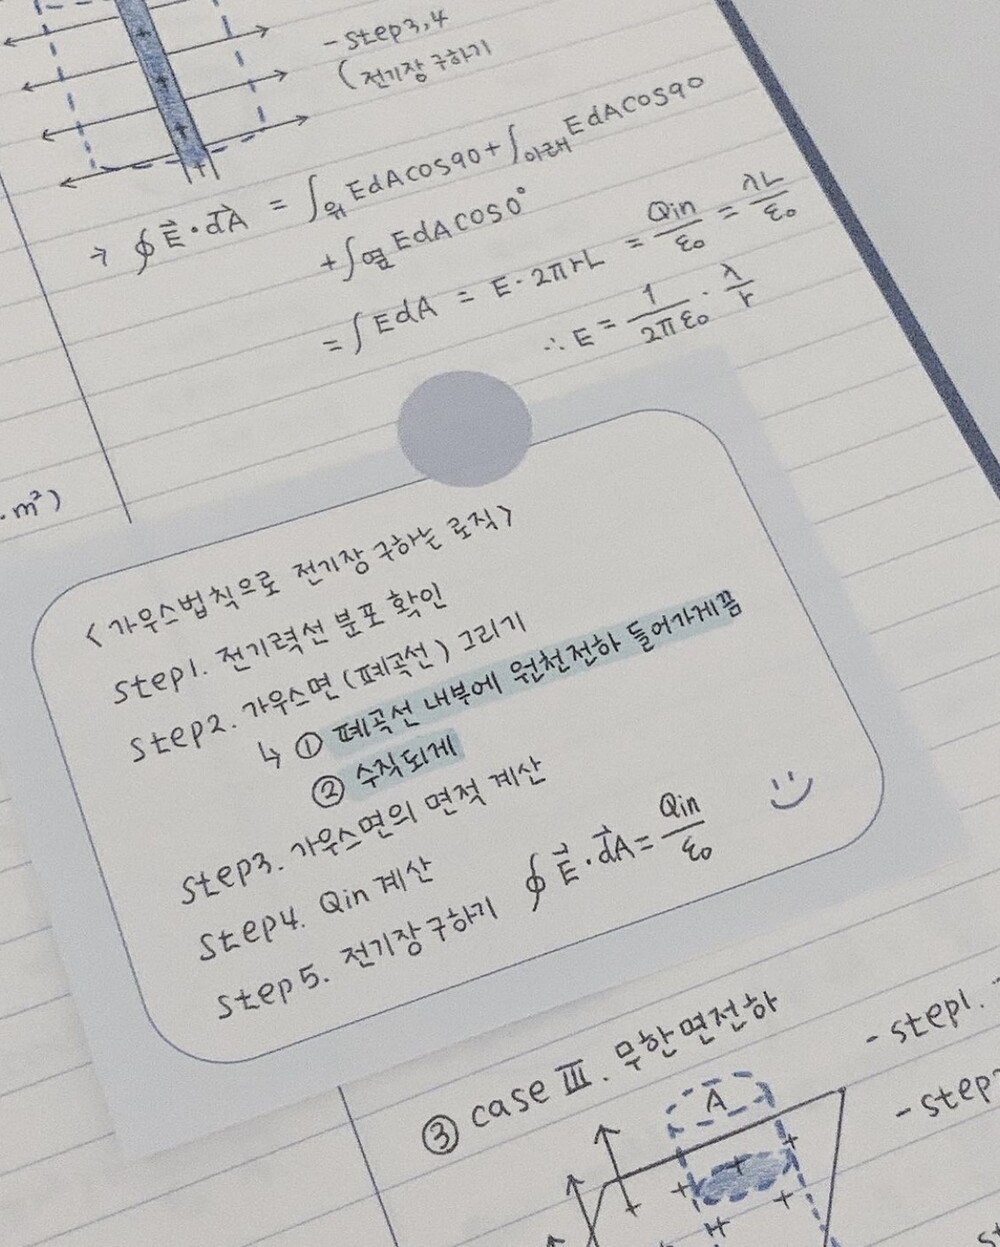 - step3,4
( 전기장 구하기
→ ∮E⃗·dA⃗ = ∫위 EdAcos90 + ∫아래 EdAcos90
+ ∫옆 EdAcos0°
= ∫EdA = E·2πrL = Qin/ε₀ = λL/ε₀
∴ E = 1/2πε₀ · λ/r
·m²)
<가우스법칙으로 전기장 구하는 로직>
step1. 전기력선 분포 확인
step2. 가우스면(폐곡선) 그리기
↳ ① 폐곡선 내부에 원천전하 들어가게끔
② 수직되게
step3. 가우스면의 면적 계산
step4. Qin 계산
step5. 전기장구하기 ∮E⃗·dA⃗ = Qin/ε₀
③ case Ⅲ. 무한면전하
- step1.
- step
A